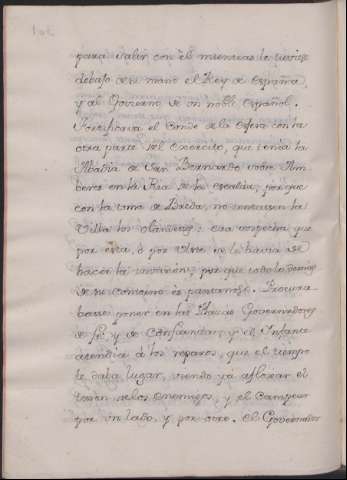 para salir con él mientras le tuviese
debajo de su mano el Rey de España,
y al Govierno de un noble Español.
Fortificava el Conde de la Fera con la
otra parte del Exercito, que tenía la
Abadia de San Bernardo sobre Am
beres en la Ria de la Escalda; porque
con la toma de Breda, no tentassen la
Villa los Olandeses; era sospecha que
por esta, ó por se le havia de
hacer la invasión; porque todo lo demas
de su contorno es pantanoso. Procura
basse poner en las Plazas Governadores
de fe, y de confianza; y el Infante
atendia á los reparos, que el tiempo
le daba lugar, viendo yá afloxar el
teson de los enemigos, y el campear
por un lado, y por otro. El Governador